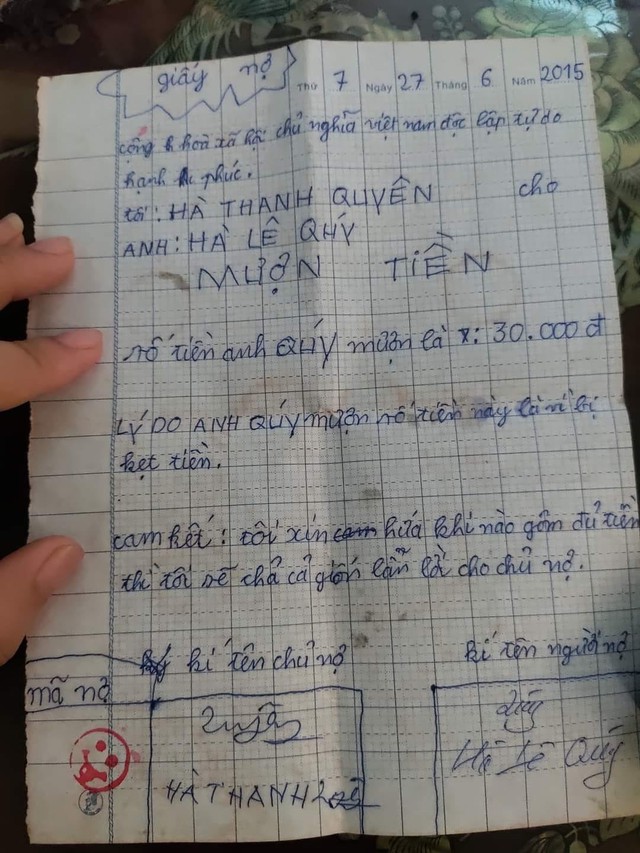 giấy nợ
Thứ 7 Ngày 27 Tháng 6 Năm 2015
cộng hoà xã hội chủ nghĩa việt nam độc lập tự do
hanh phúc.
tôi: HÀ THANH QUYÊN cho
ANH: HÀ LÊ QUÝ
MƯỢN TIỀN
số tiền anh QUÝ mượn là : 30.000 đ
LÝ DO ANH QUÝ mượn số tiền này là vì bị
kẹt tiền.
cam kết: tôi xin hứa khi nào gôm đủ tiền
thì tôi sẽ chả cả gốn lẫn lời cho chủ nợ.
kí tên chủ nợ kí tên người nợ
mã nợ
Quyên Quý
HÀ THANH Hà Lê Quý